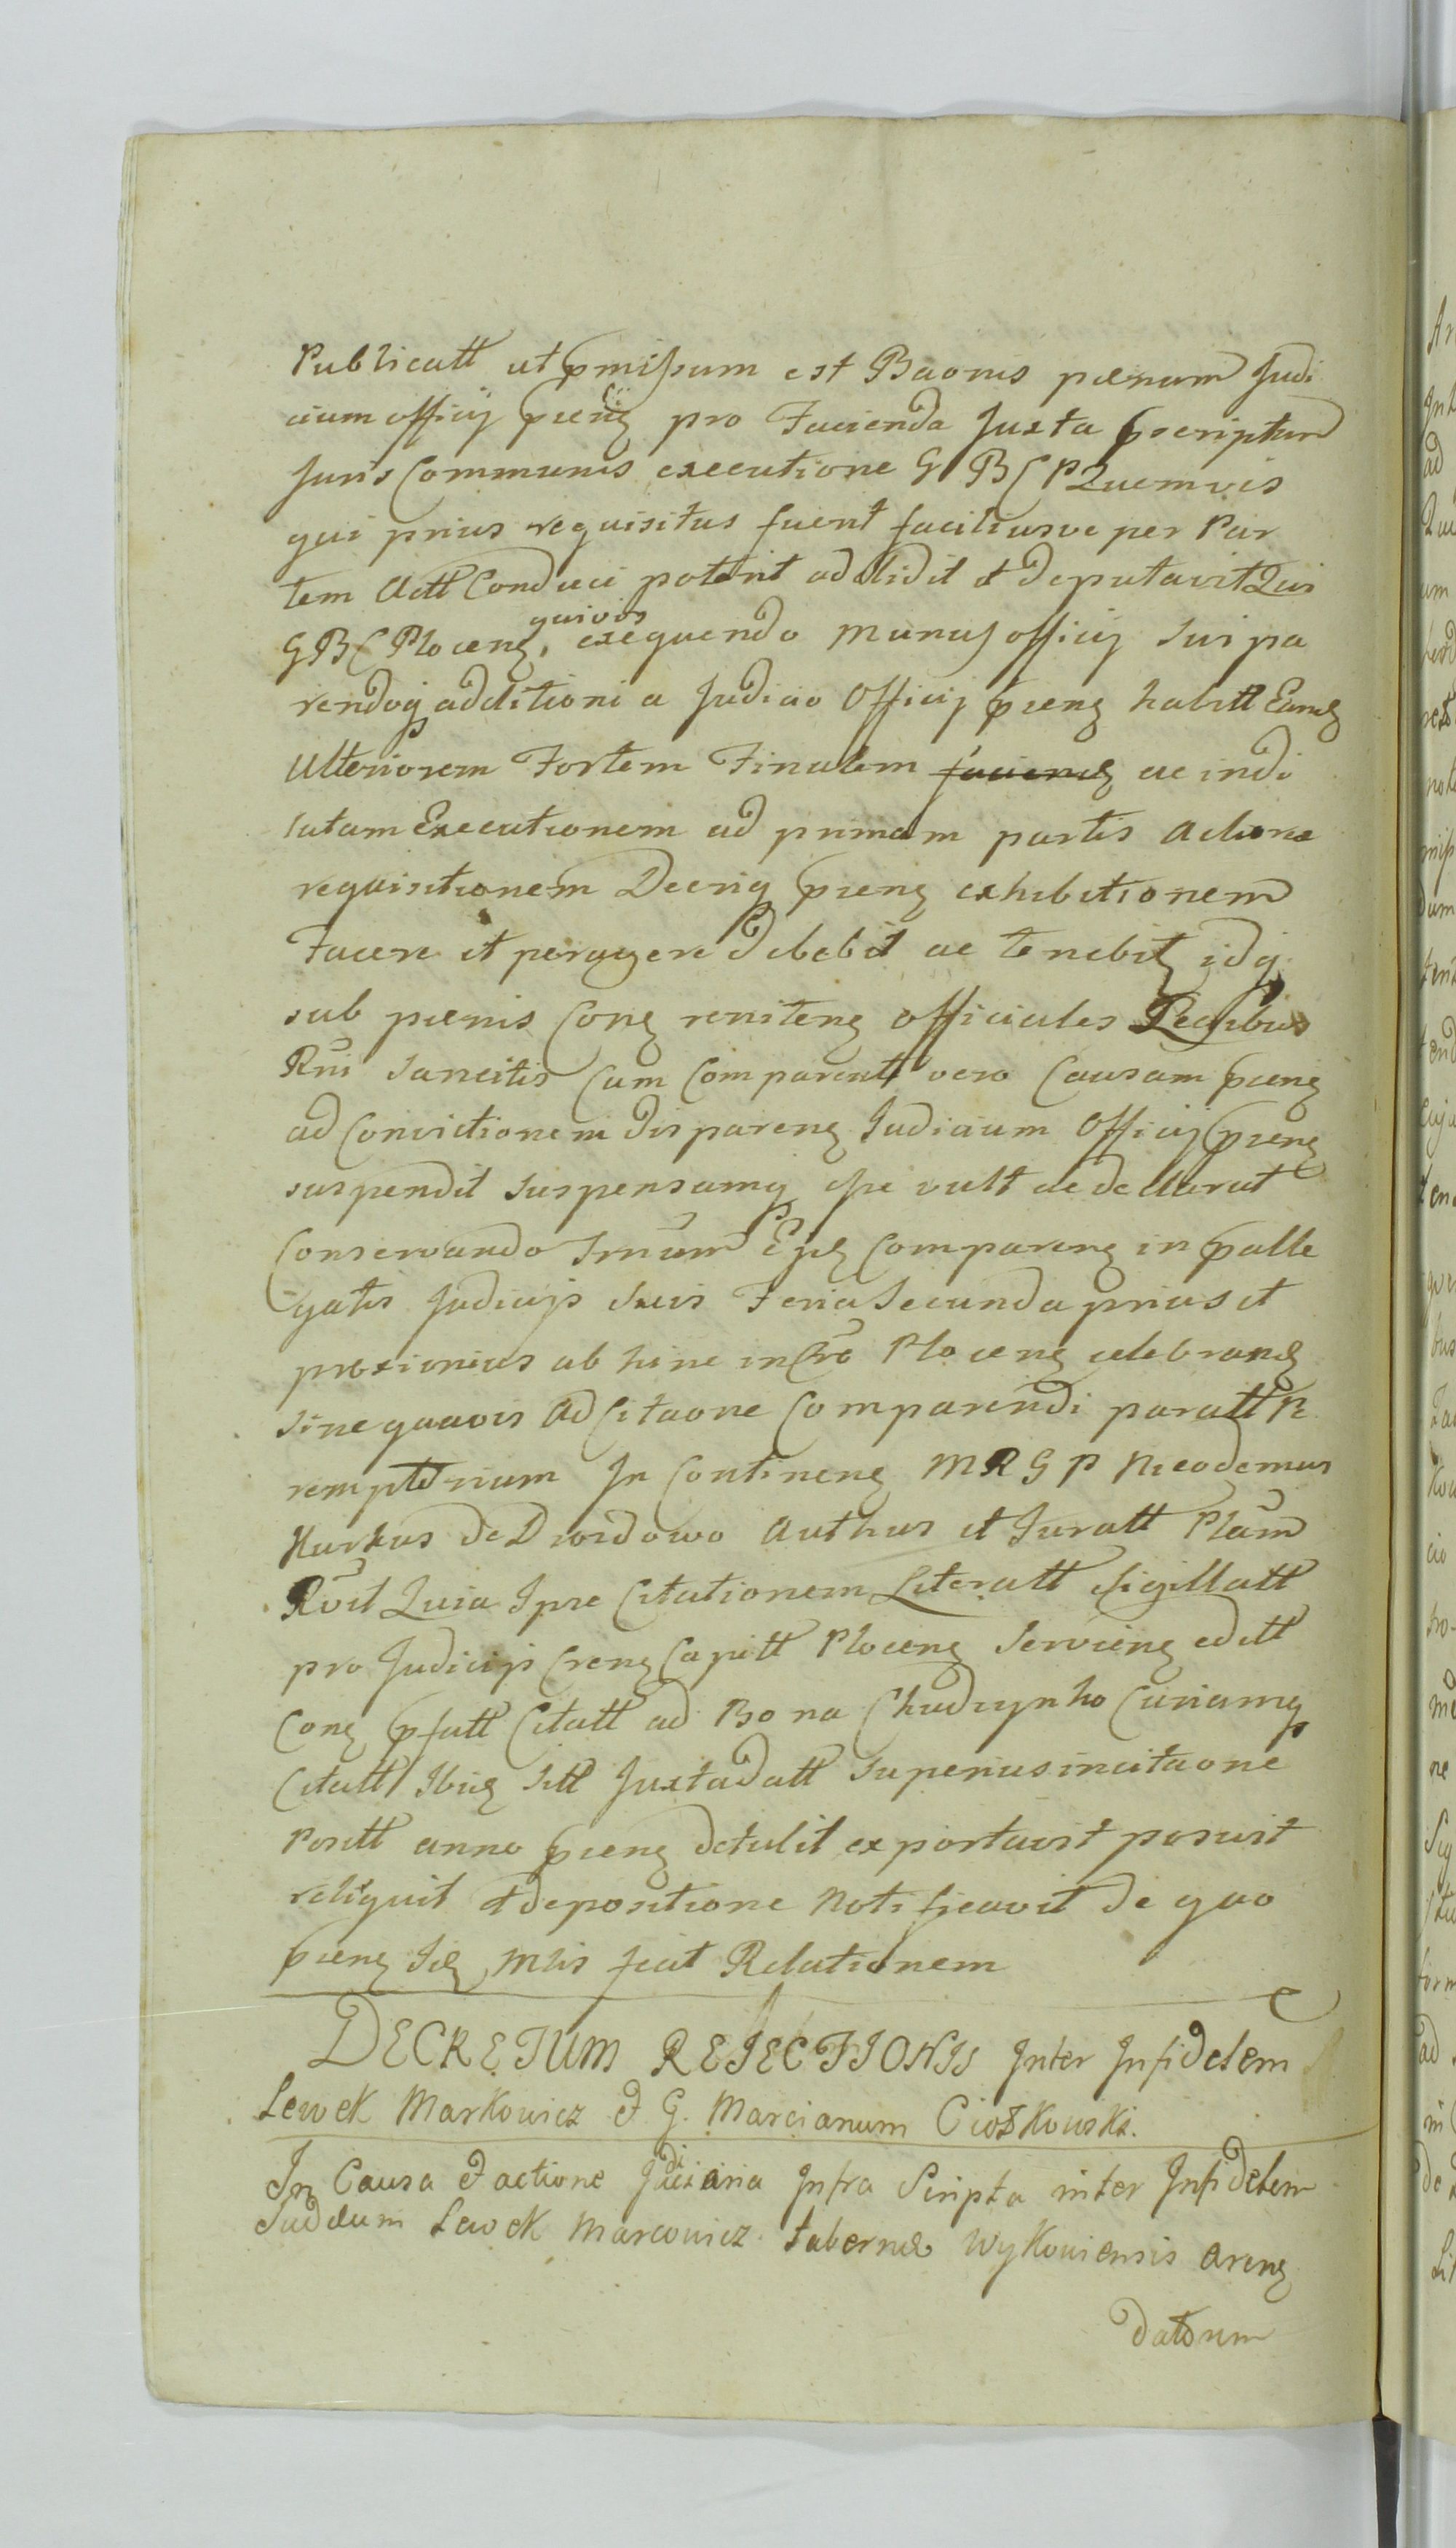 Publicatt ut pmissum est Baonis pœnam Judi
cium officij pœng pro Facienda Juxta pscriptum
Juris Communis executione G B C P Quemvis
qui prius requisitus fuerit faciliusve per Par
tem Actt Conduci poterit addidit et deputavit Qui
G B C Ploceng quivis exequendo munus officij sui pa
rendoq additioni a Judicio Officij pœng habitt Eamq
Ulteriorem Fortem Finalem ac indi
latam Executionem ad primam partis Actorea
requisitionem Decriq pœng exhibitionem
Facere et peragere debebit ac tenebitq idq
sub pœnis Cong reniteng officiales Legibus
Rni sancitis Cum Comparentt vero Causam pœng
ad Convictionem dispareng Judicium Officij pœng
suspendit suspensamq esse vult ac decllarat
Conservando Trnum Ejq Compareng in palle
gatis Judicijs suis Feria Secunda prius et
proximius ab hinc in Cro Ploceng celebrang
sine quavis Adcitaone Comparendi paratt Pe
remptorium In Contineng M R G P Nicodemus
Kurkus de Drozdowo Authus et Juratt Plam
Rvit Quia Ipse Citationem Literatt Sigillatt
pro Judicijs Creng Capitt Ploceng Servieng editt
Cong pfatt Citatt ad Bona Chudzynko Curiamq
Citatt Ibiq sitt Juxta datt superius in citaone
Positt anno pœng detulit exportavit posuit
reliquit et depositione Notificavit de quo
pœng Siq Mlis fecit Relationem
DECRETUM REJECTIONIS Inter Infidelem
Lewek Markowicz & G. Marcianum Ciołkowski.
In Causa & actione Judiciaria Infra Scripta inter Infidelem
Judæum Lewek Marcowicz tabernæ Wykoviensis Areng
datorum